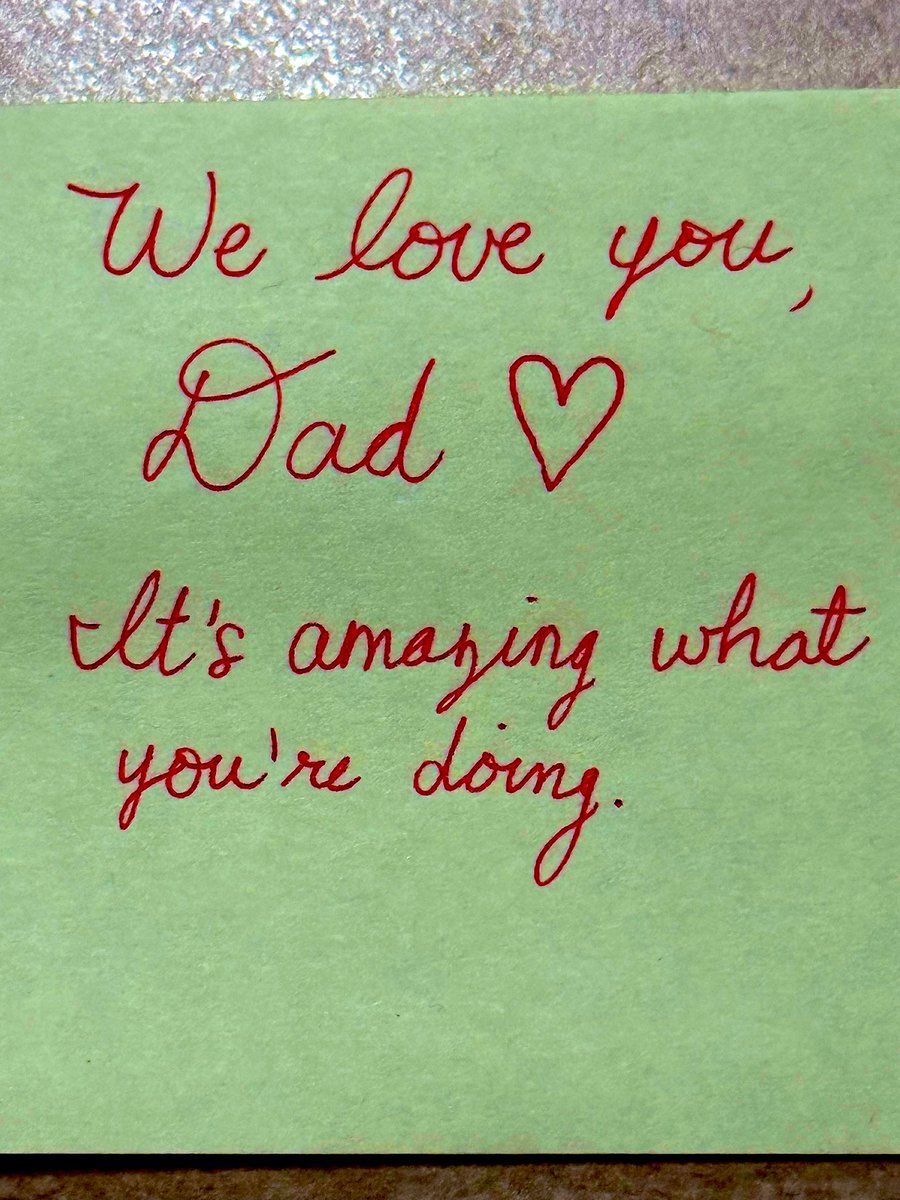 We love you,
Dad ♡
It's amazing what
you're doing.